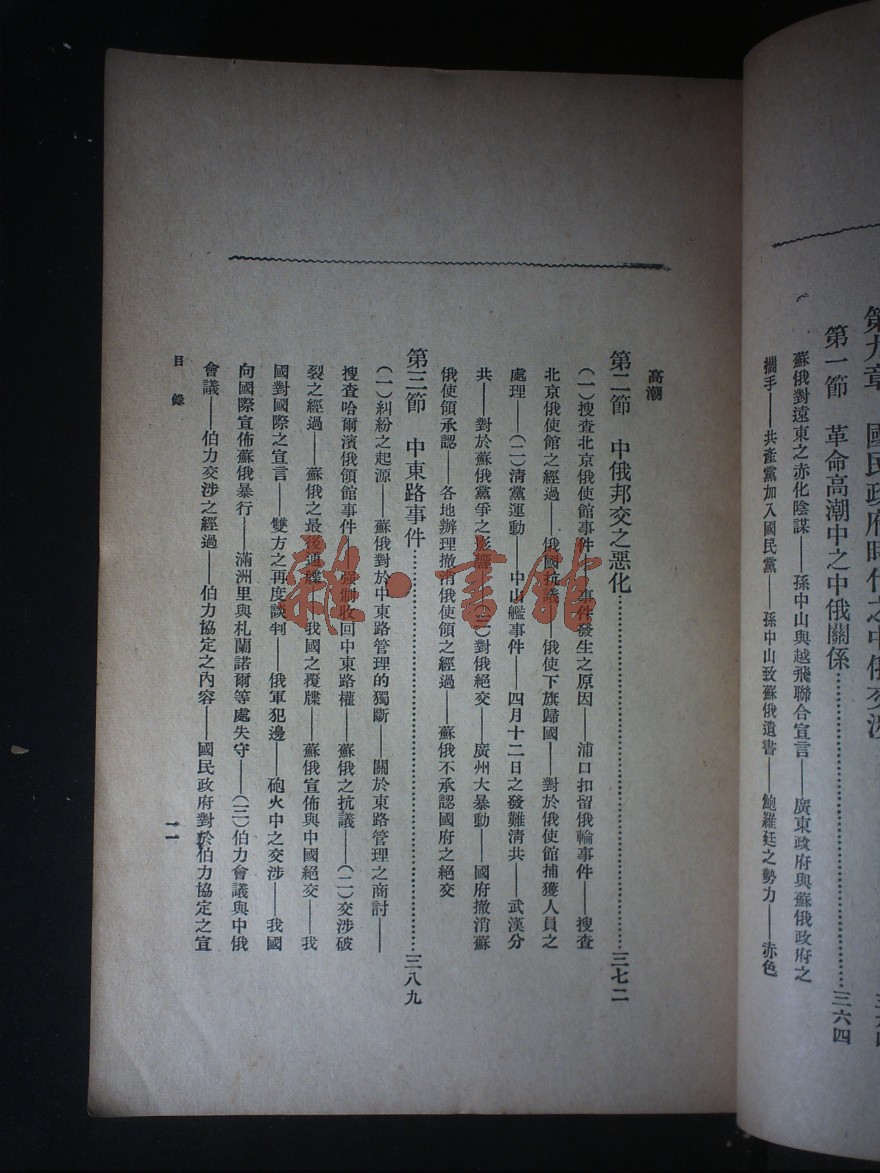 國民政府時代之中俄交涉
第一節 革命高潮中之中俄關係……三六四
蘇俄對遠東之赤化陰謀——孫中山與越飛聯合宣言——廣東政府與蘇俄政府之
攜手——共產黨加入國民黨——孫中山致蘇俄遺書——鮑羅廷之勢力——赤色
高潮
第二節 中俄邦交之惡化……三七二
（一）搜查北京俄使館事件——事件發生之原因——浦口扣留俄輪事件——搜查
北京俄使館之經過——俄國抗議——俄使下旗歸國——對於俄使館捕獲人員之
處理——（二）清黨運動——中山艦事件——四月十二日之發難清共——武漢分
共——對於蘇俄黨爭之影響——（三）對俄絕交——廣州大暴動——國府撤消蘇
俄使領承認——各地辦理撤消俄使領之經過——蘇俄不承認國府之絕交
第三節 中東路事件……三八九
（一）糾紛之起源——蘇俄對於中東路管理的獨斷——關於東路管理之商討——
搜查哈爾濱俄領館事件——強制收回中東路權——蘇俄之抗議——（二）交涉破
裂之經過——蘇俄之最後通牒——我國之覆牒——蘇俄宣佈與中國絕交——我
國對國際之宣言——雙方之再度談判——俄軍犯邊——砲火中之交涉——我國
向國際宣佈蘇俄暴行——滿洲里與札蘭諾爾等處失守——（三）伯力會議與中俄
會議——伯力交涉之經過——伯力協定之內容——國民政府對於伯力協定之宣
目錄
一一
雜·書館